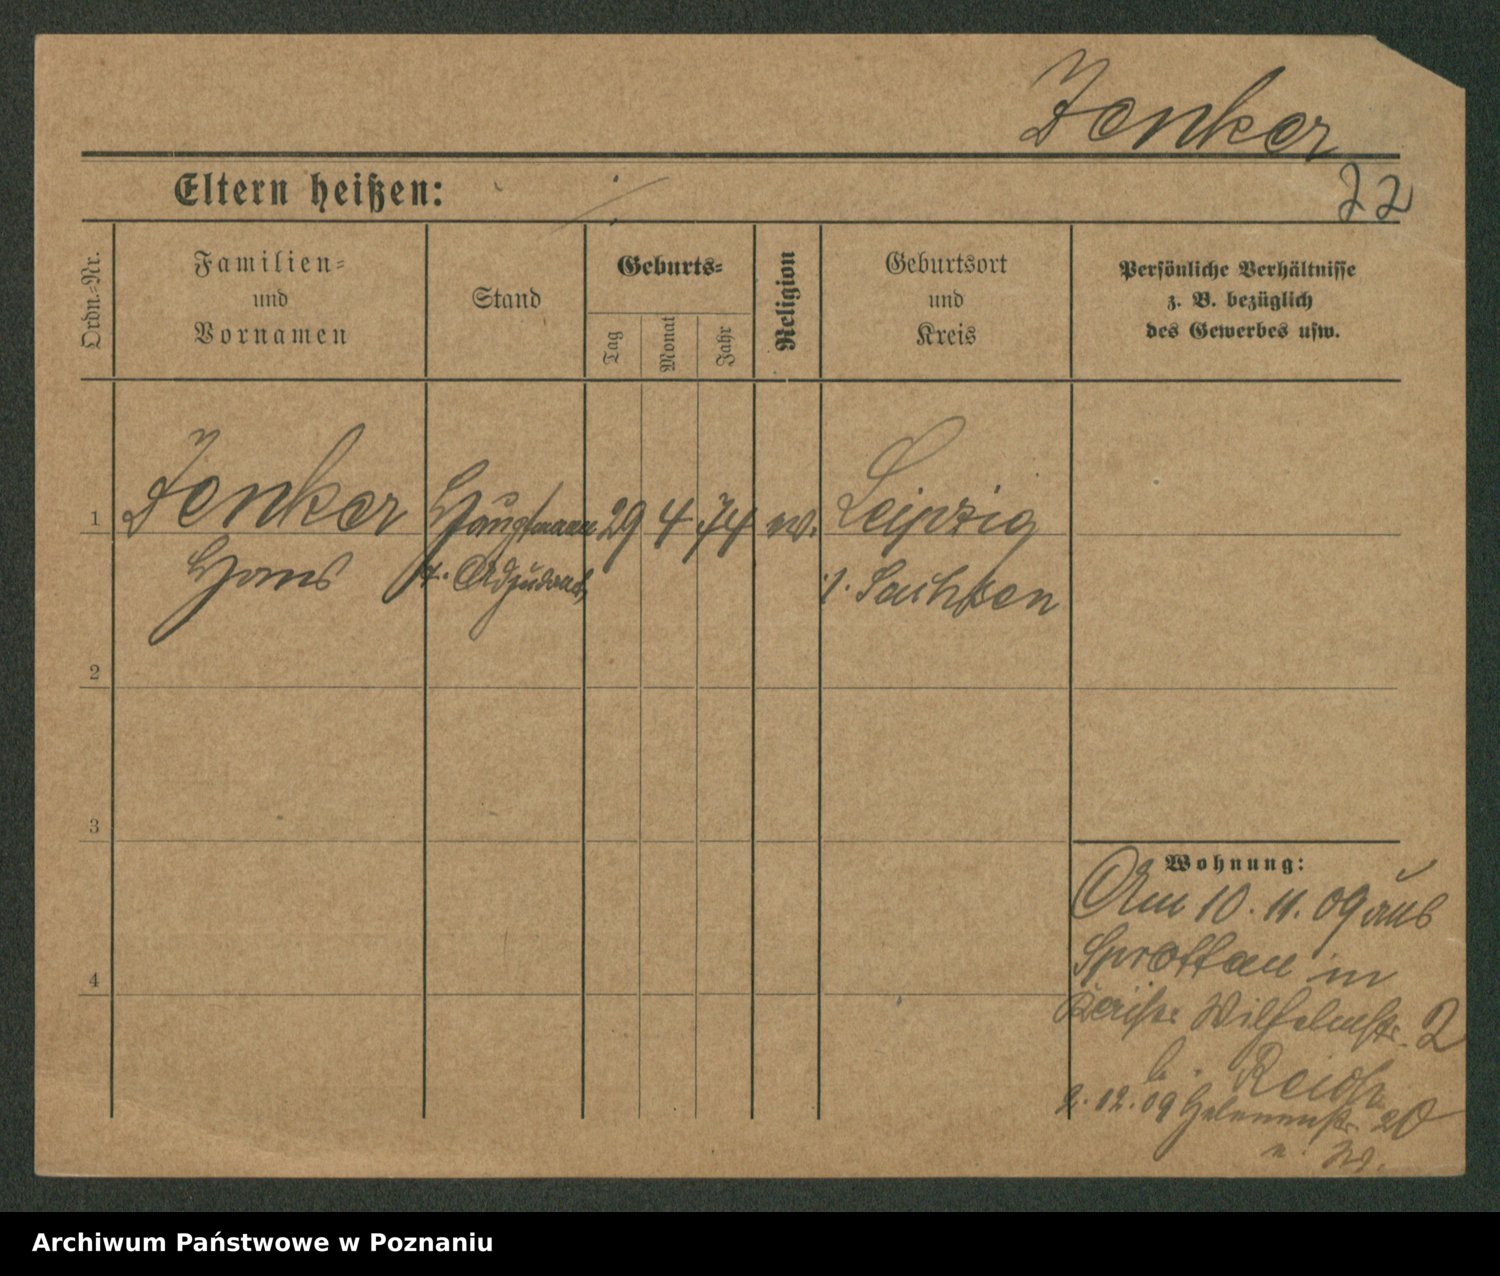 Jenker
22
Eltern heißen: ./.
Ordn.-Nr.
Familien-
und
Vornamen
Stand
Geburts-
Tag
Monat
Jahr
Religion
Geburtsort
und
Kreis
Persönliche Verhältnisse
z. B. bezüglich
des Gewerbes usw.
1
Jenker Hauptmann 29 4 74 ev. Leipzig
Hans u. Adjudant i. Sachsen
2
3
4
Wohnung:
Am 10. 11. 09 aus
Sprottau in
Kaiser Wilhelmstr. 2
b. Reich
2. 12. 09 Helenenstr. 20
Archiwum Państwowe w Poznaniu